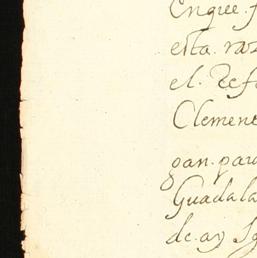 Enque.f
esta raz
el. Refe
Clemen
gan. para
Guadala
de. ay